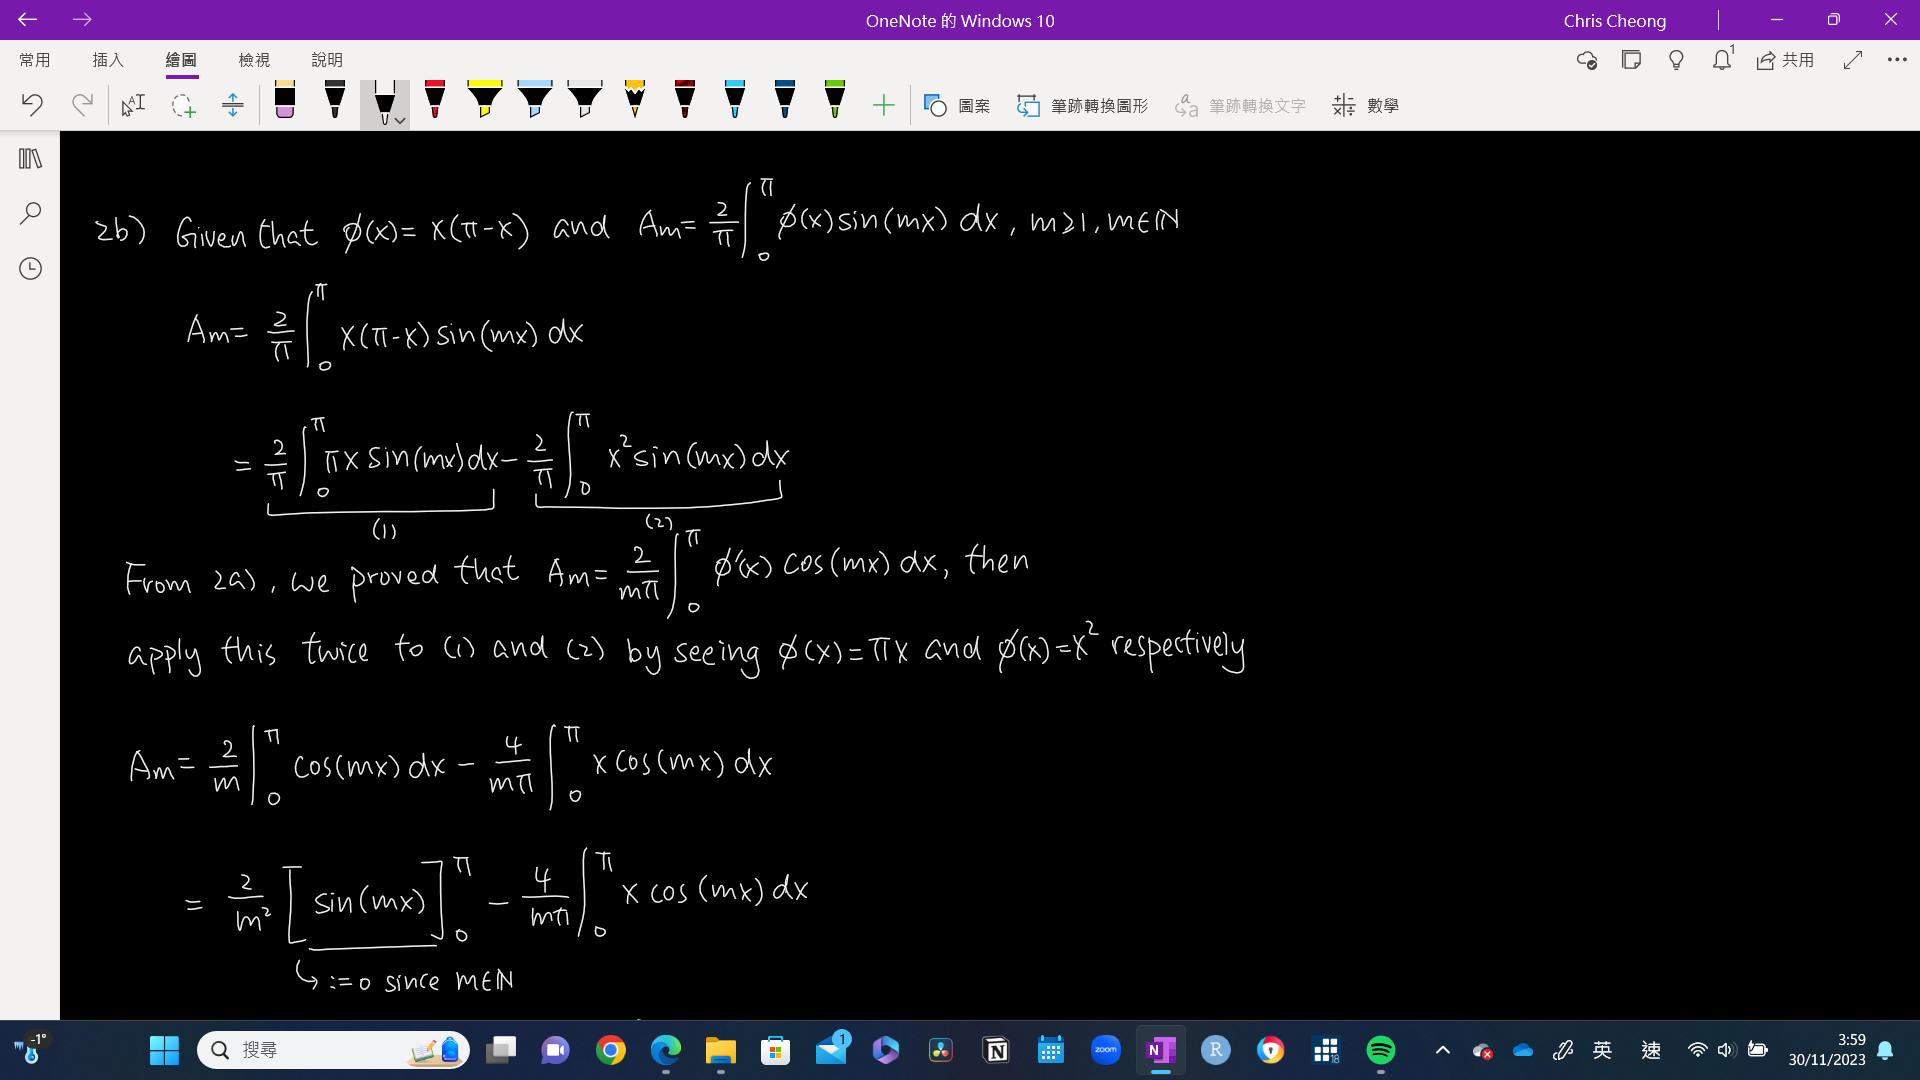 OneNote 的 Windows 10
Chris Cheong
常用 插入 繪圖 檢視 說明
1
共用
圖案 筆跡轉換圖形 筆跡轉換文字 數學
2b) Given that ϕ(x)= x(π-x) and Am= 2/π ∫₀^π ϕ(x)sin(mx) dx, m≥1, m∈ℕ
Am= 2/π ∫₀^π x(π-x)sin(mx) dx
= 2/π ∫₀^π πx sin(mx)dx - 2/π ∫₀^π x² sin(mx)dx
(1) (2)
From 2a), we proved that Am= 2/mπ ∫₀^π ϕ'(x) cos(mx) dx, then
apply this twice to (1) and (2) by seeing ϕ(x)=πx and ϕ(x)=x² respectively
Am= 2/m ∫₀^π cos(mx) dx - 4/mπ ∫₀^π x cos(mx) dx
= 2/m² [sin(mx)]₀^π - 4/mπ ∫₀^π x cos(mx) dx
↳ :=0 since m∈ℕ
-1°
搜尋
1
zoom
N
R
18
英
速
3:59
30/11/2023